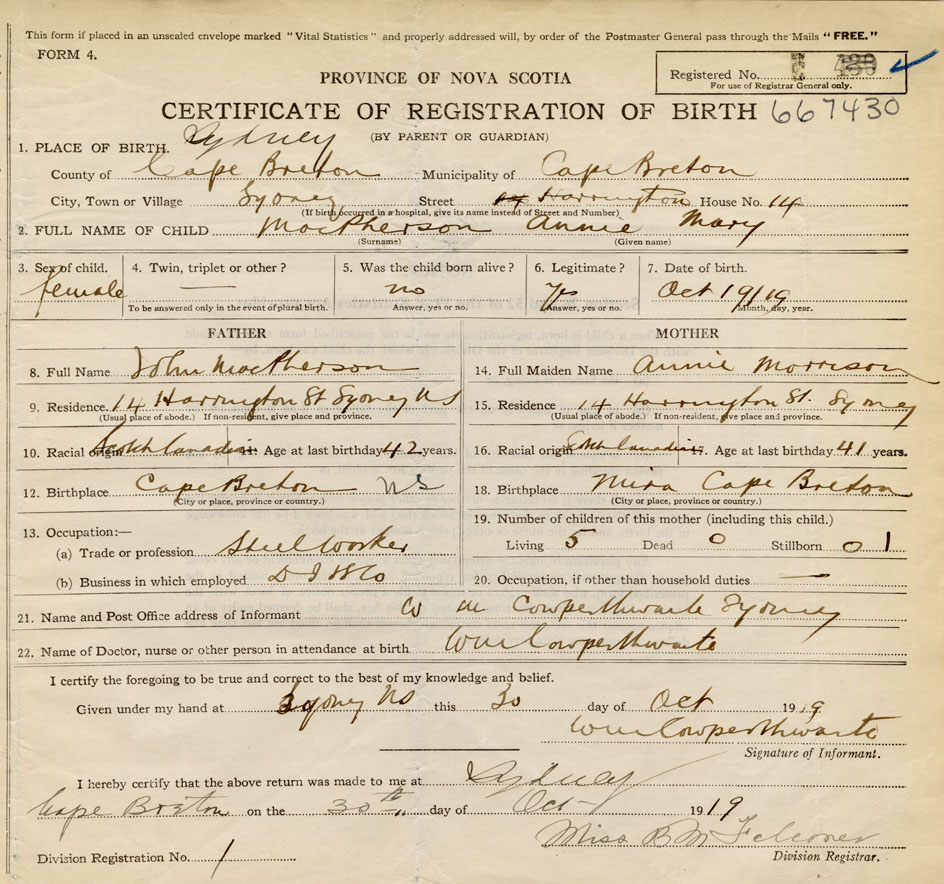 This form if placed in an unsealed envelope marked "Vital Statistics" and properly addressed will, by order of the Postmaster General pass through the Mails "FREE."
FORM 4.
PROVINCE OF NOVA SCOTIA
Registered No.
For use of Registrar General only.
CERTIFICATE OF REGISTRATION OF BIRTH 667430
(BY PARENT OR GUARDIAN)
1. PLACE OF BIRTH. Sydney
County of Cape Breton Municipality of Cape Breton
City, Town or Village Sydney Street Harrington House No. 14
(If birth occurred in a hospital, give its name instead of Street and Number)
2. FULL NAME OF CHILD MacPherson Annie Mary
(Surname) (Given name)
3. Sex of child. 4. Twin, triplet or other? 5. Was the child born alive? 6. Legitimate? 7. Date of birth.
female — no yes Oct 19/19
To be answered only in the event of plural birth. Answer, yes or no. Answer, yes or no. Month, day, year.
FATHER MOTHER
8. Full Name John MacPherson 14. Full Maiden Name Annie Morrison
9. Residence 14 Harrington St Sydney NS 15. Residence 14 Harrington St. Sydney
(Usual place of abode.) If non-resident, give place and province. (Usual place of abode.) If non-resident, give place and province.
10. Racial origin Age at last birthday 42 years. 16. Racial origin Age at last birthday 41 years.
12. Birthplace Cape Breton NS 18. Birthplace Mira Cape Breton
(City or place, province or country.) (City or place, province or country.)
13. Occupation:—
(a) Trade or profession Steel Worker
(b) Business in which employed D I S Co
19. Number of children of this mother (including this child.)
Living 5 Dead 0 Stillborn 0 1
20. Occupation, if other than household duties —
21. Name and Post Office address of Informant W m Cowperthwaite Sydney
22. Name of Doctor, nurse or other person in attendance at birth Wm Cowperthwaite
I certify the foregoing to be true and correct to the best of my knowledge and belief.
Given under my hand at Sydney NS this 30 day of Oct 1919
Wm Cowperthwaite
Signature of Informant.
I hereby certify that the above return was made to me at Sydney
Cape Breton on the 30th day of Oct 1919
Miss B M Falconer
Division Registration No. 1 Division Registrar.